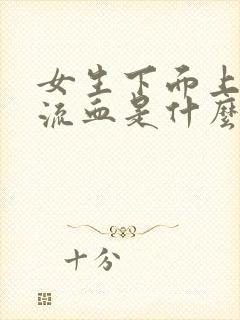 女生下而上
流血是什麼
十分